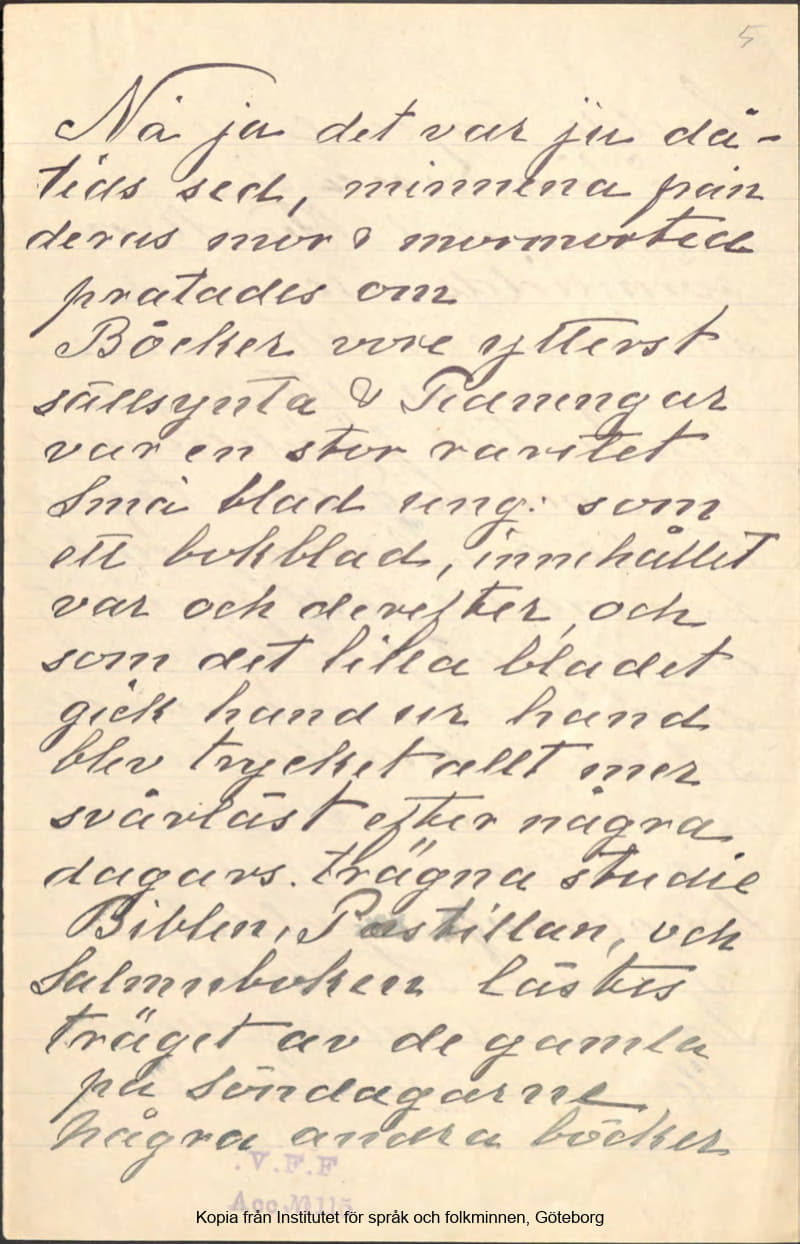 5
Nå ja det var ju då-
tids sed, minnena från
deras mor & mormorstid
pratades om
Böcker vore ytterst
sällsynta & Tidningar
var en stor raritet
Små blad ung: som
ett bokblad, innehållet
var och derefter, och
som det lilla bladet
gick hand ur hand
blev trycket allt mer
svårläst efter några
dagars. trägna studie
Biblen, Postillan, och
Salmnboken lästes
träget av de gamla
på Söndagarne
några andra böcker
.V.F.F
Acc.No 115
Kopia från Institutet för språk och folkminnen, Göteborg